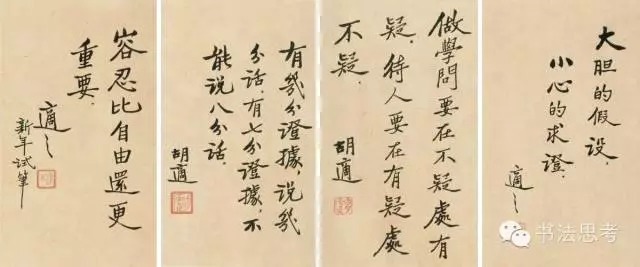 大胆的假設，
小心的求證．
適之
做學問要在不疑處有
疑，待人要在有疑處
不疑．
胡適
有幾分證據，說幾
分話．有七分證據，不
能说八分話．
胡適
容忍比自由還更
重要．
適之
新年试筆
书法思考